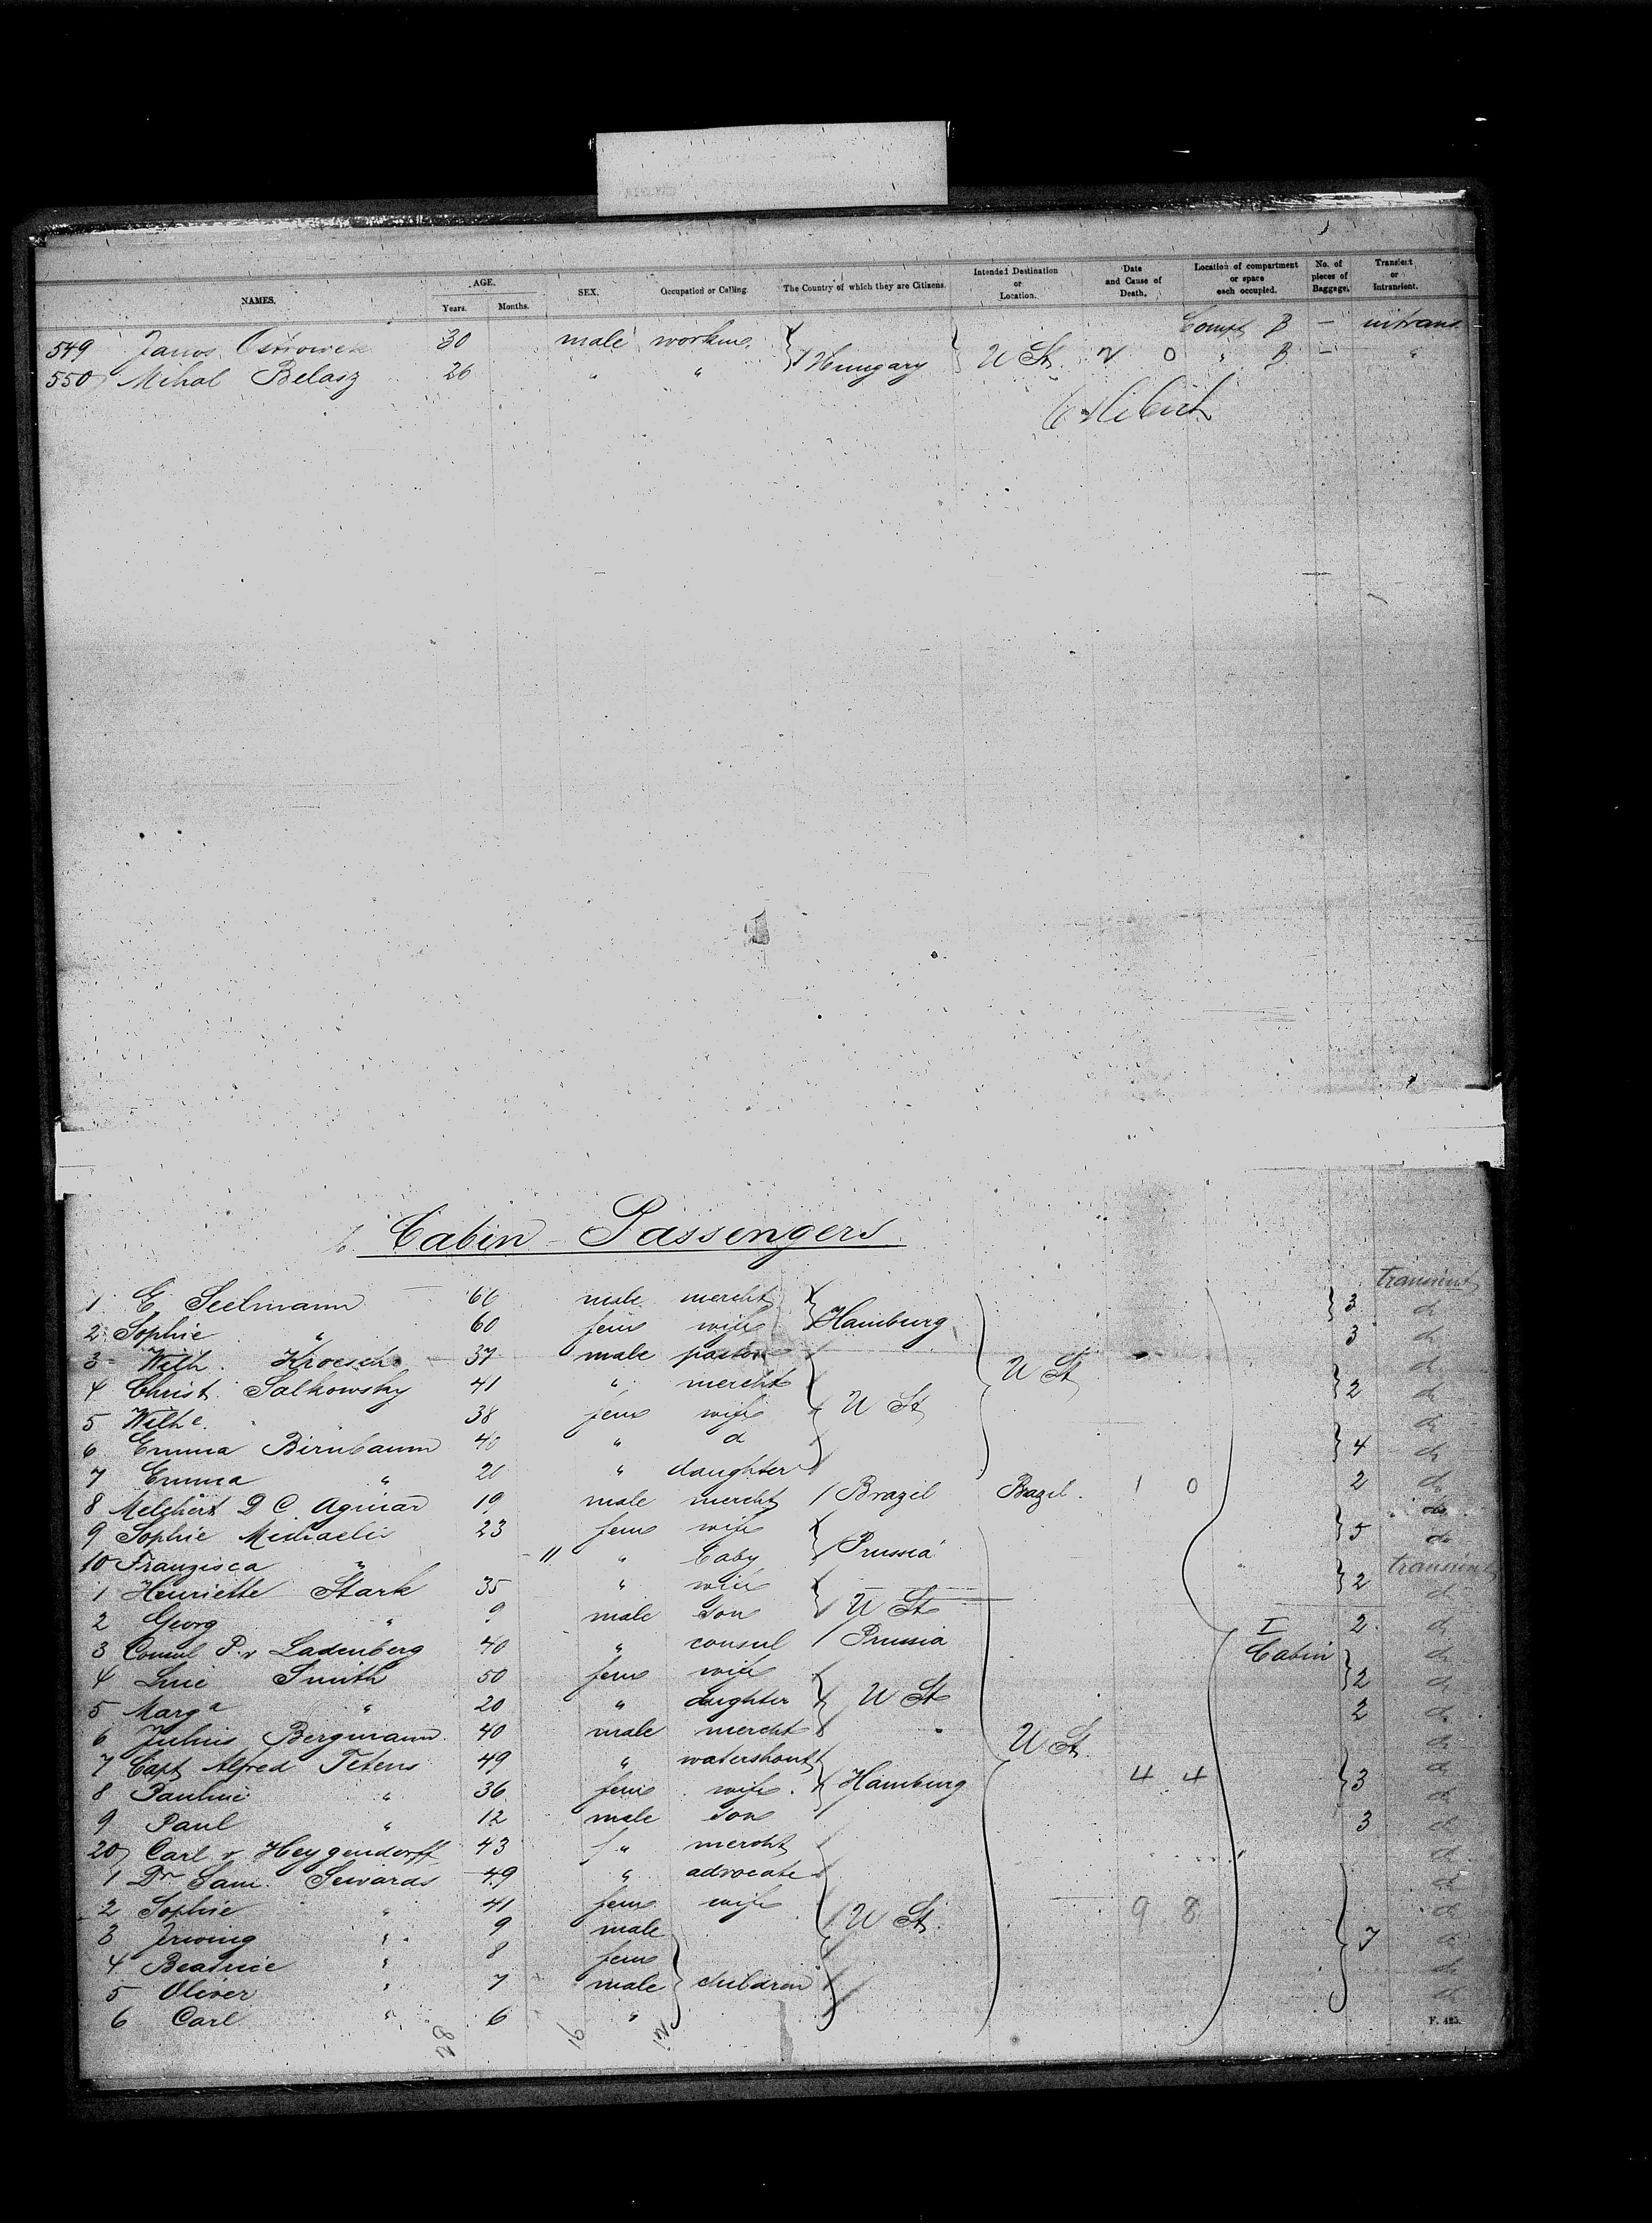 NAMES. AGE. Years. Months. SEX. Occupation or Calling. The Country of which they are Citizens. Intended Destination or Location. Date and Cause of Death. Location of compartment or space each occupied. No. of pieces of Baggage. Transient or Intransient.
549 Janos 30 male workm. Hungary U St Compt B — intrans.
550 Mihal Belasz 26 " " " B — "
Cabin - Passengers
1 E. Seelmann 60 male mercht Hamburg 3 transient
2 Sophie " 60 fem wife d
3 Wilh. Kroesche 37 male pastor U St 3 d
4 Christ. Salkowsky 41 " mercht U St 2 d
5 Wilhe. " 38 fem wife d
6 Emma Birnbaum 40 " d 4 d
7 Emma " 20 " daughter d
8 Melchirt D C. Aguiar 19 male mercht / Brazil Bazil. 1 0 2 d
9 Sophie Michaelis 23 fem wife Prussia 5 do
10 Franzisca " - 11 " baby d
1 Henriette Stark 35 " wife U St 2 transient
2 Georg " 9 male son d
3 Consul P. v Ladenberg 40 " consul / Prussia I Cabin 2 d
4 Smith 50 fem wife U St 2 d
5 Marga " 20 " dughter d
6 Julius Bergmann 40 male mercht " U St. 2 d
7 Capt Alfred Tetens 49 " watershout Hamburg 4 4 3 d
8 Pauline " 36 fem wife d
9 Paul " 12 male son d
20 Carl v Heygendorff 43 " mercht 3 d
1 Dr Sam. Sewards 49 " advocate U St. d
2 Sophie " 41 fem wife 9 8 d
3 Jrwing " 9 male children 7 d
4 Beatrice " 8 fem d
5 Oliver " 7 male d
6 Carl " 6 " d
F. 425.